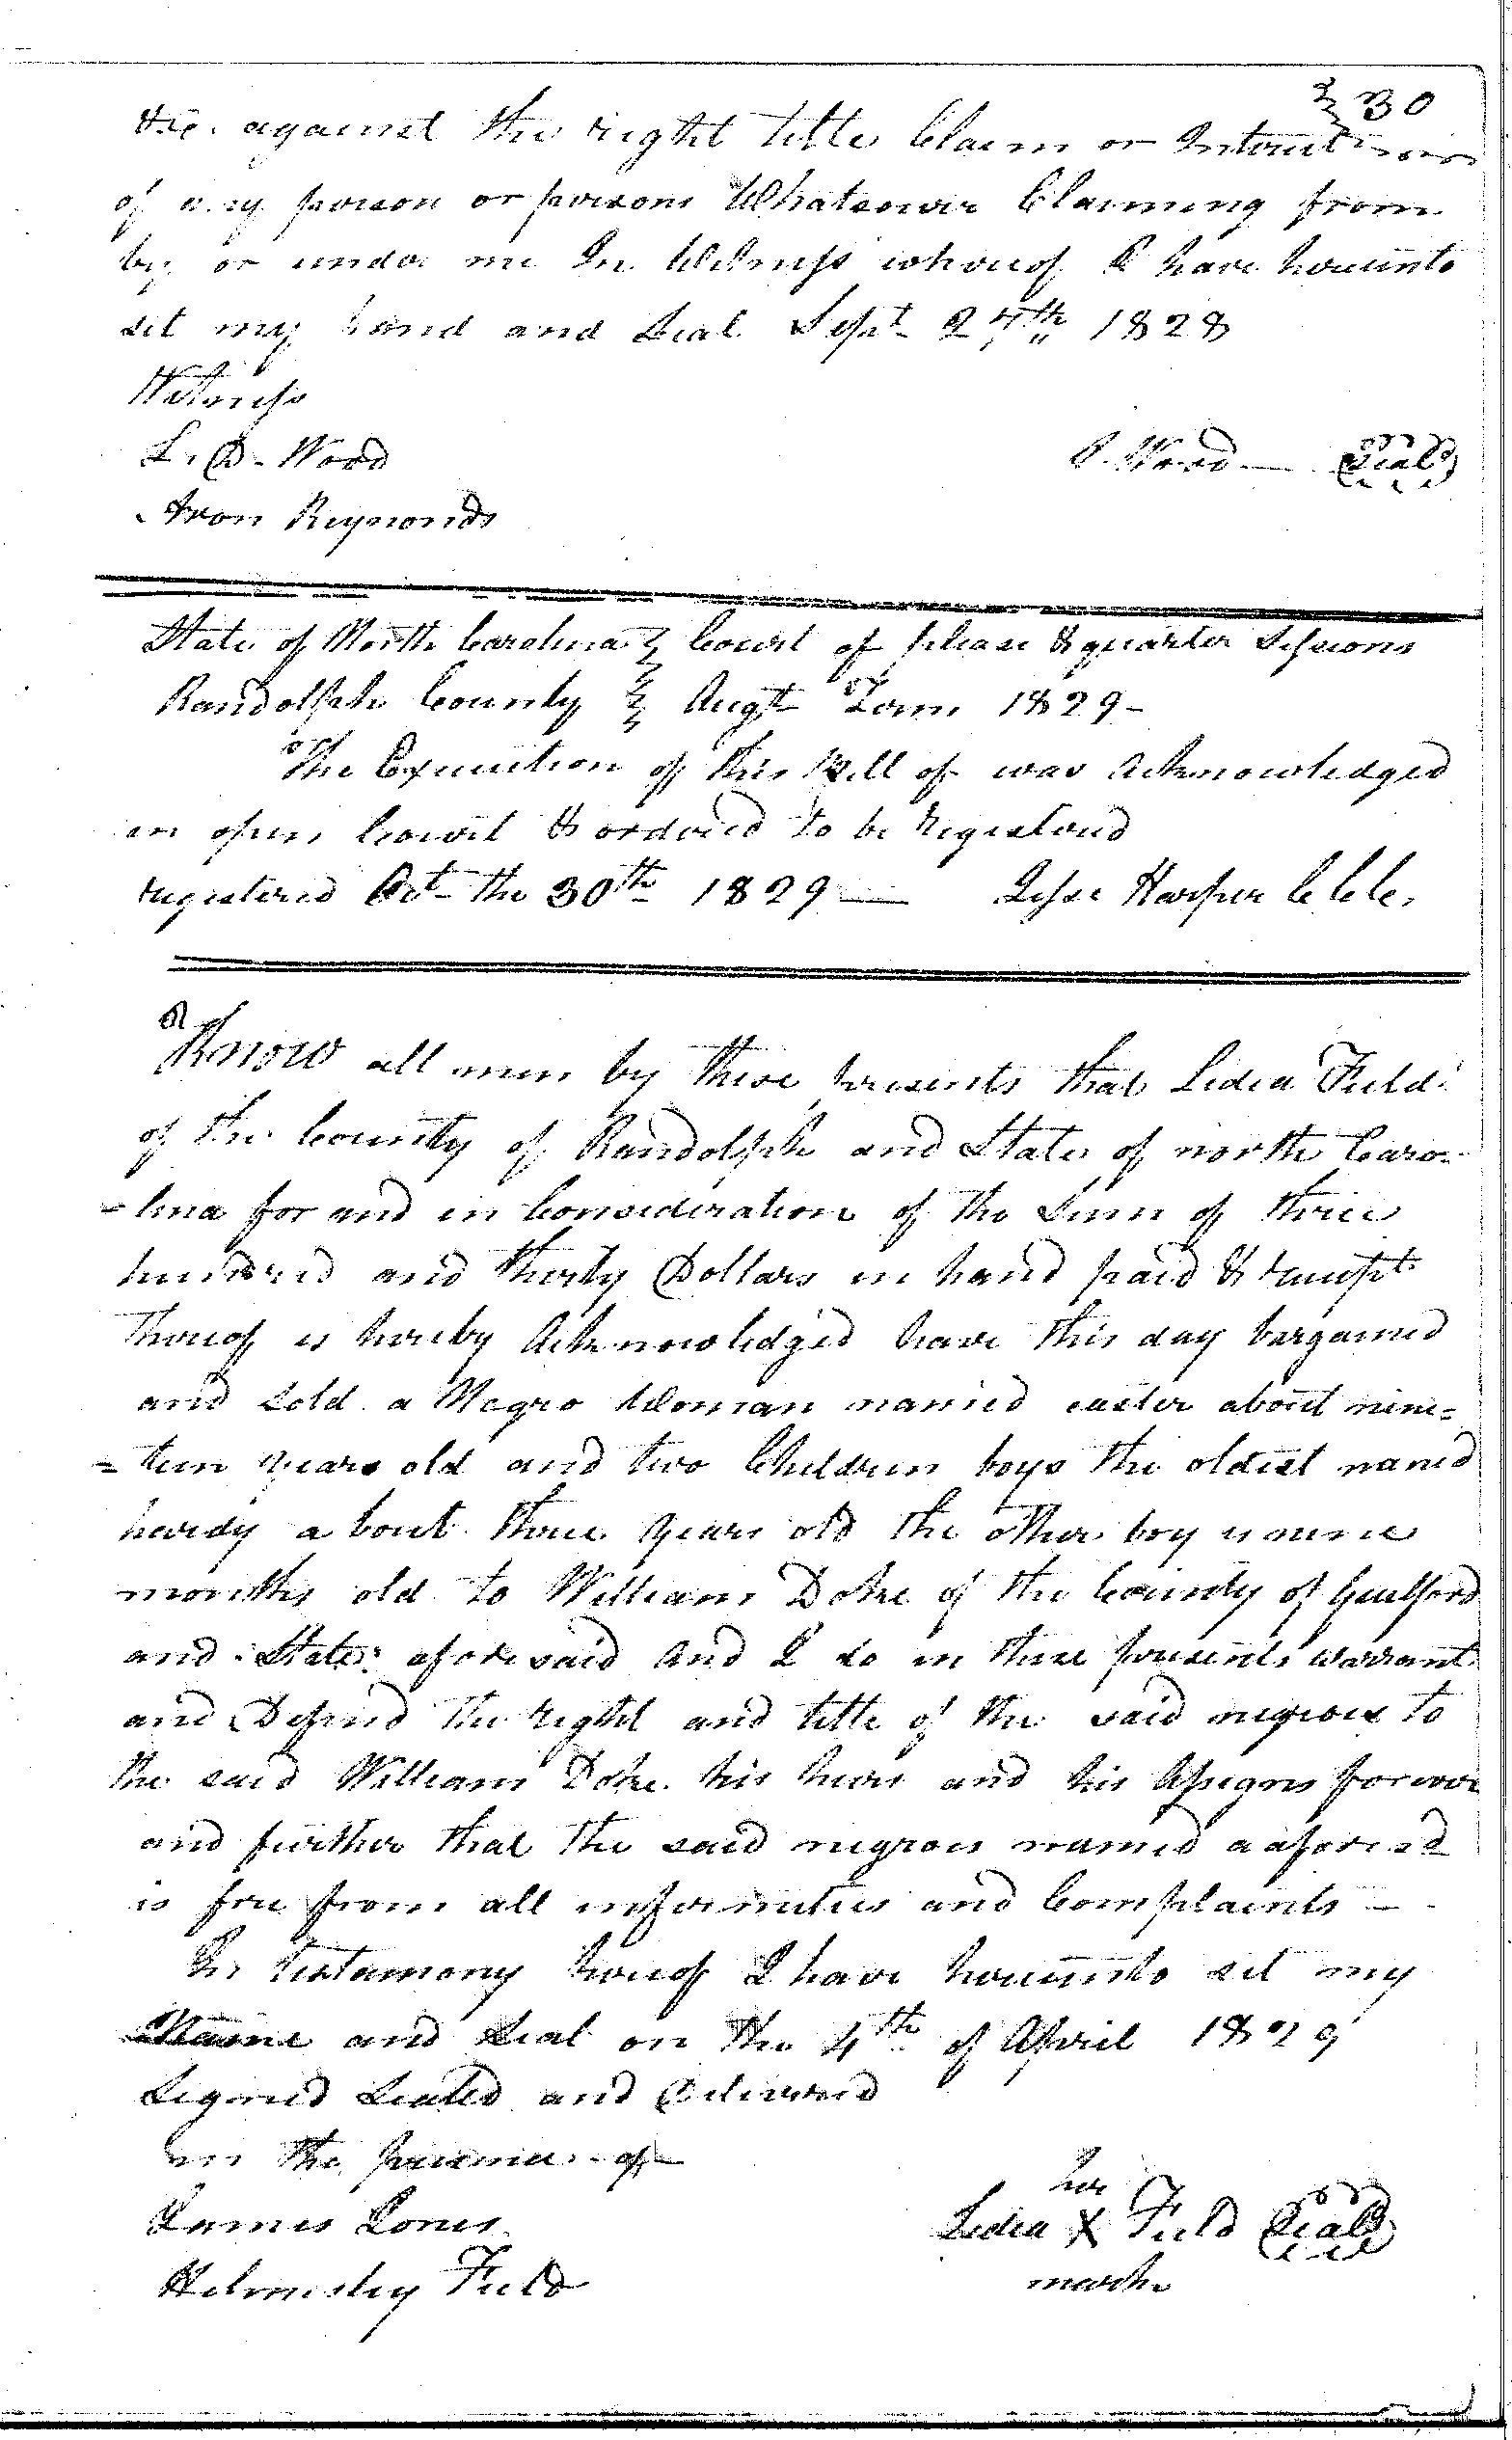 30
&c. against the right title Claim or Interest
of any person or persons Whatsoever Claiming from
by or under me In Witness whereof I have hereunto
set my hand and Seal Sept 24th 1828
Witness
L. D. Wood
P. Wood — Seal
Aron Reynonds
State of North Carolina } Court of please & quarter Sessions
Randolph County } Augt Term 1829-
The Execution of this Bill of was Acknowledged
in open Court & ordered to be registered
registered Oct the 30th 1829 — Jesse Harper C C C.
Know all men by these presents that Lidia Field
of the County of Randolph and State of north Caro-
-lina for and in Consideration of the Sum of three
hundred and thirty Dollars in hand paid & receipt
Thereof is hereby Acknowledged have this day bargained
and Sold a Negro Woman named easter about nine=
=teen years old and two Children boys the oldest named
hardy a bout three years old the other boy is nine
months old to William Doke of the County of Guilford
and State aforesaid And I do in these presents warrant
and Defend the right and title of the said negroes to
the said William Doke his heirs and his Assigns forever
and further that the said negroes named aaforesd
is free from all infirmities and Complaints —
In testamony hereof I have hereunto set my
Name and Seal on the 4th of April 1829
Signed Sealed and Delivered
in the presence of
James Jones
her
Lidia X Field Seal
mark
Helmsley Field